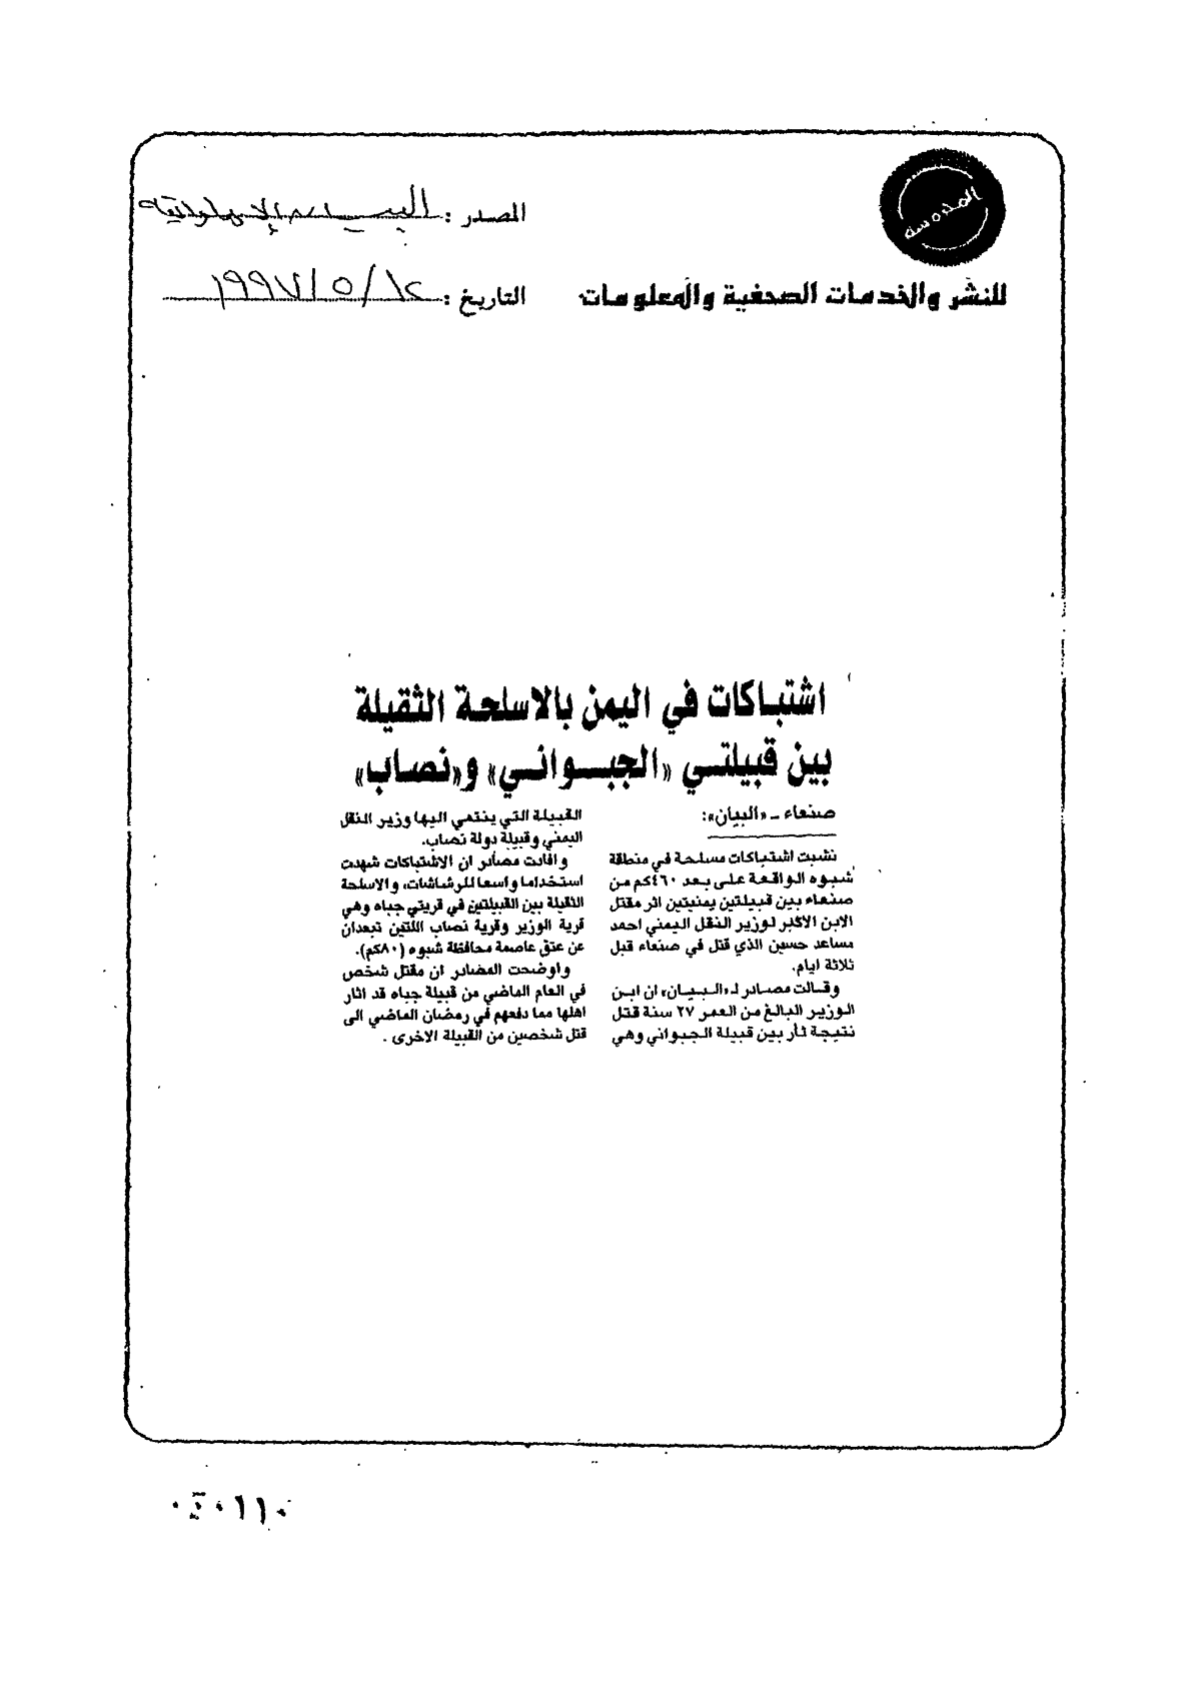 المدوسة
المصدر : البيان الإماراتية
للنشر والخدمات الصحفية والمعلومات
التاريخ : ١٩٩٧/٥/١٢
اشتباكات في اليمن بالاسلحة الثقيلة
بين قبيلتي «الجبواني» و«نصاب»
صنعاء ـ «البيان»:
نشبت اشتباكات مسلحة في منطقة
شبوه الواقعة على بعد ٤٦٠كم من
صنعاء بين قبيلتين يمنيتين اثر مقتل
الابن الاكبر لوزير النقل اليمني احمد
مساعد حسين الذي قتل في صنعاء قبل
ثلاثة ايام.
وقالت مصادر لـ «البيان» ان ابن
الوزير البالغ من العمر ٢٧ سنة قتل
نتيجة ثأر بين قبيلة الجبواني وهي
القبيلة التي ينتمي اليها وزير النقل
اليمني وقبيلة دولة نصاب.
وافادت مصادر ان الاشتباكات شهدت
استخداما واسعا للرشاشات، والاسلحة
الثقيلة بين القبيلتين في قريتي جباه وهي
قرية الوزير وقرية نصاب اللتين تبعدان
عن عتق عاصمة محافظة شبوه (٨٠كم).
واوضحت المصادر ان مقتل شخص
في العام الماضي من قبيلة جباه قد اثار
اهلها مما دفعهم في رمضان الماضي الى
قتل شخصين من القبيلة الاخرى .